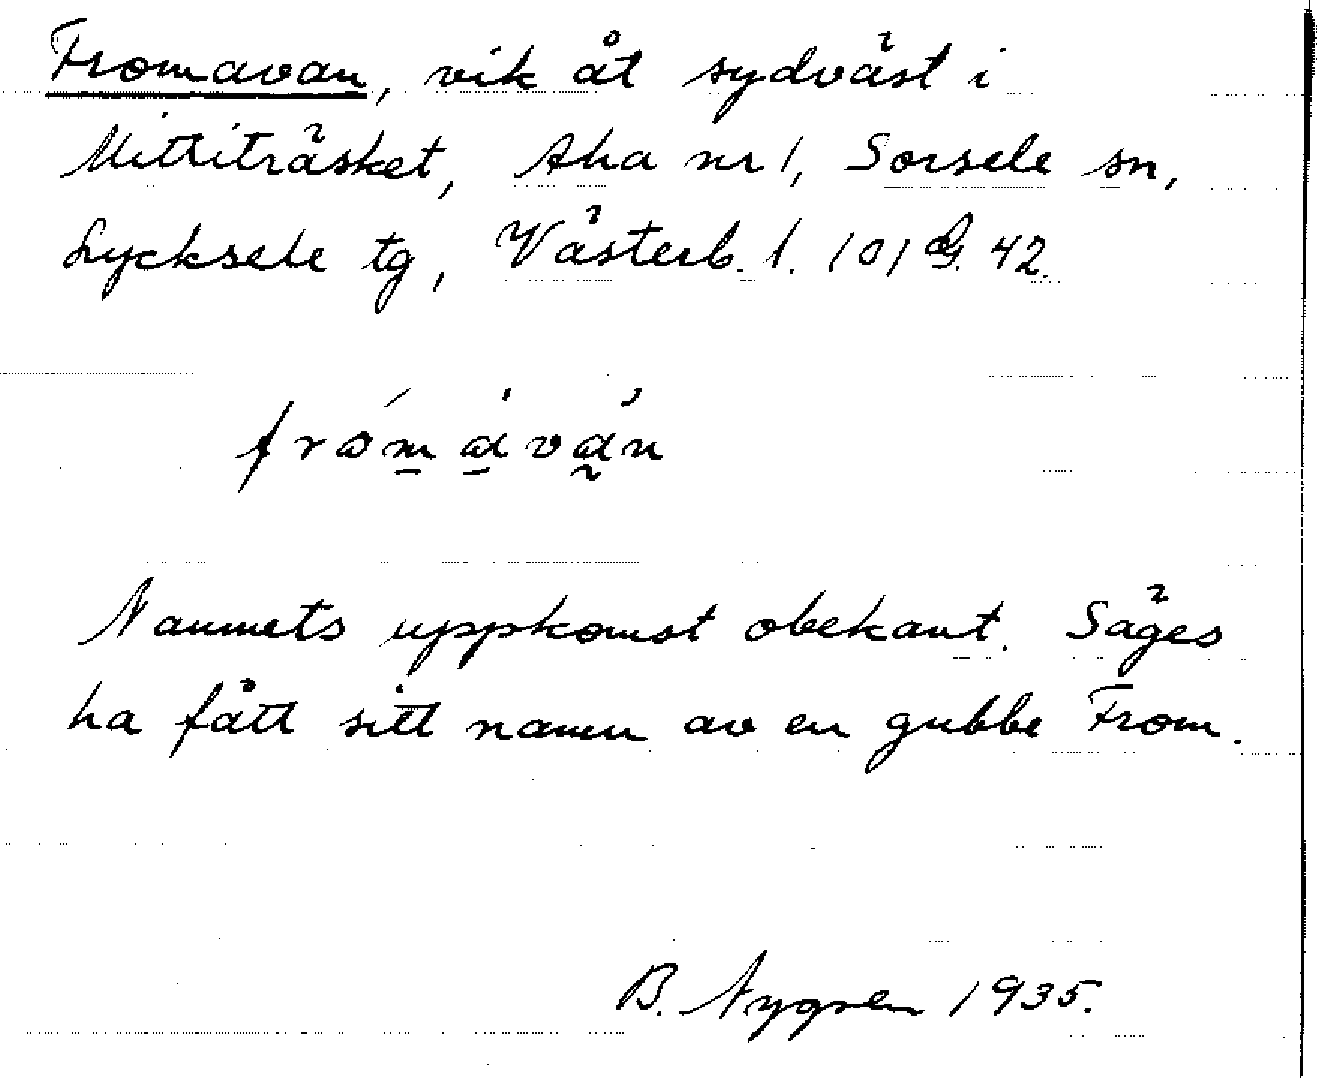 Fromavan, vik åt sydväst i
Mittiträsket, Aha nr 1, Sorsele sn,
Lycksele tg, Västerb. l. 101 G. 42.
fromavan
Namnets uppkomst obekant. Säges
ha fått sitt namn av en gubbe From.
B. Nygren 1935.